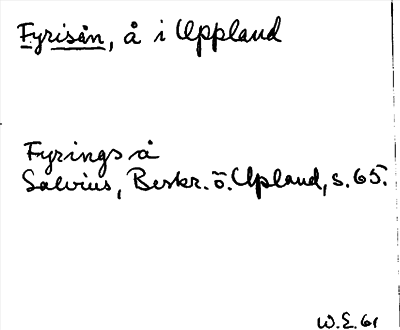 Fyrisån, å i Uppland
Fyrings å
Salvius, Beskr. ö. Upland, s. 65.
W.E. 61